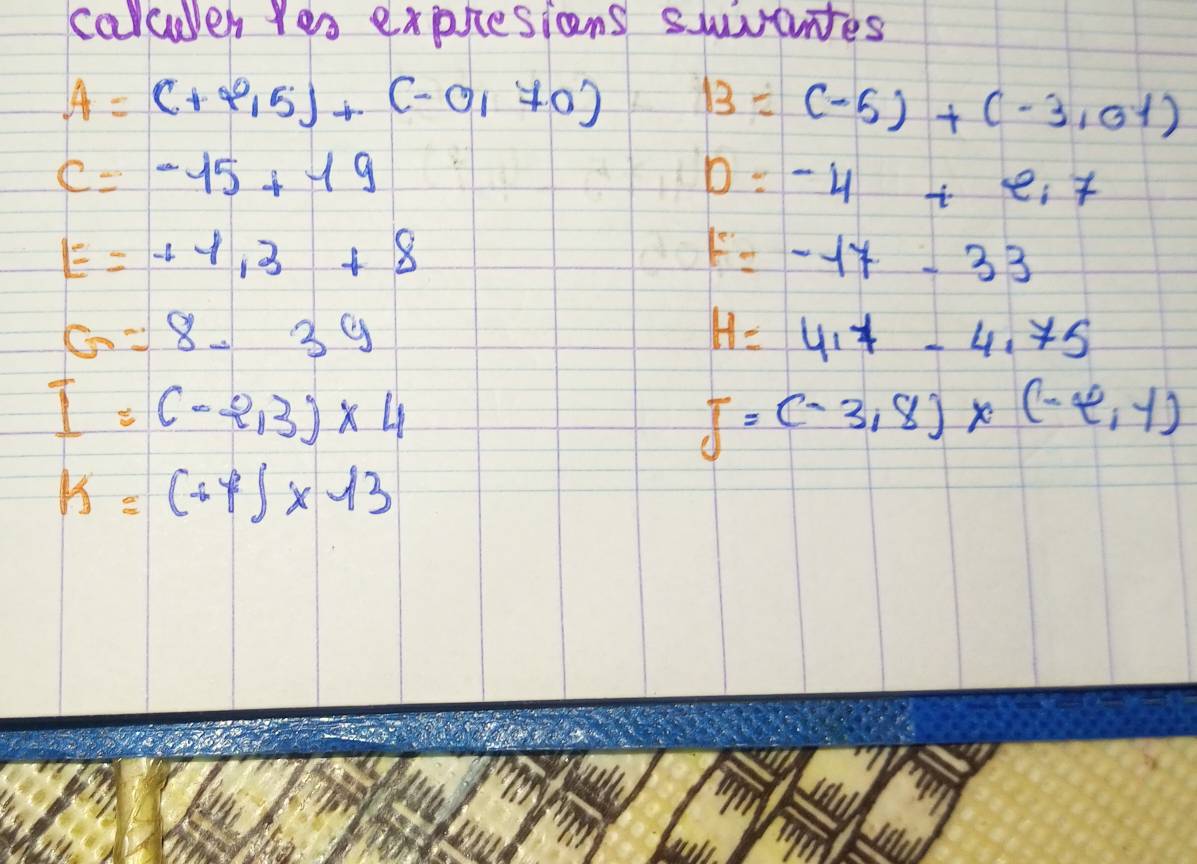 calculer les expresions suivantes
A = (+2,5) + (-0,70) B = (-5) + (-3,01)
C = -15 + 19 D = -4 + 2,7
E = +1,3 + 8 F = -17 - 33
G = 8 - 39 H = 4,7 - 4,75
I = (-2,3) x 4 J = (-3,8) x (-2,1)
K = (+1) x 13